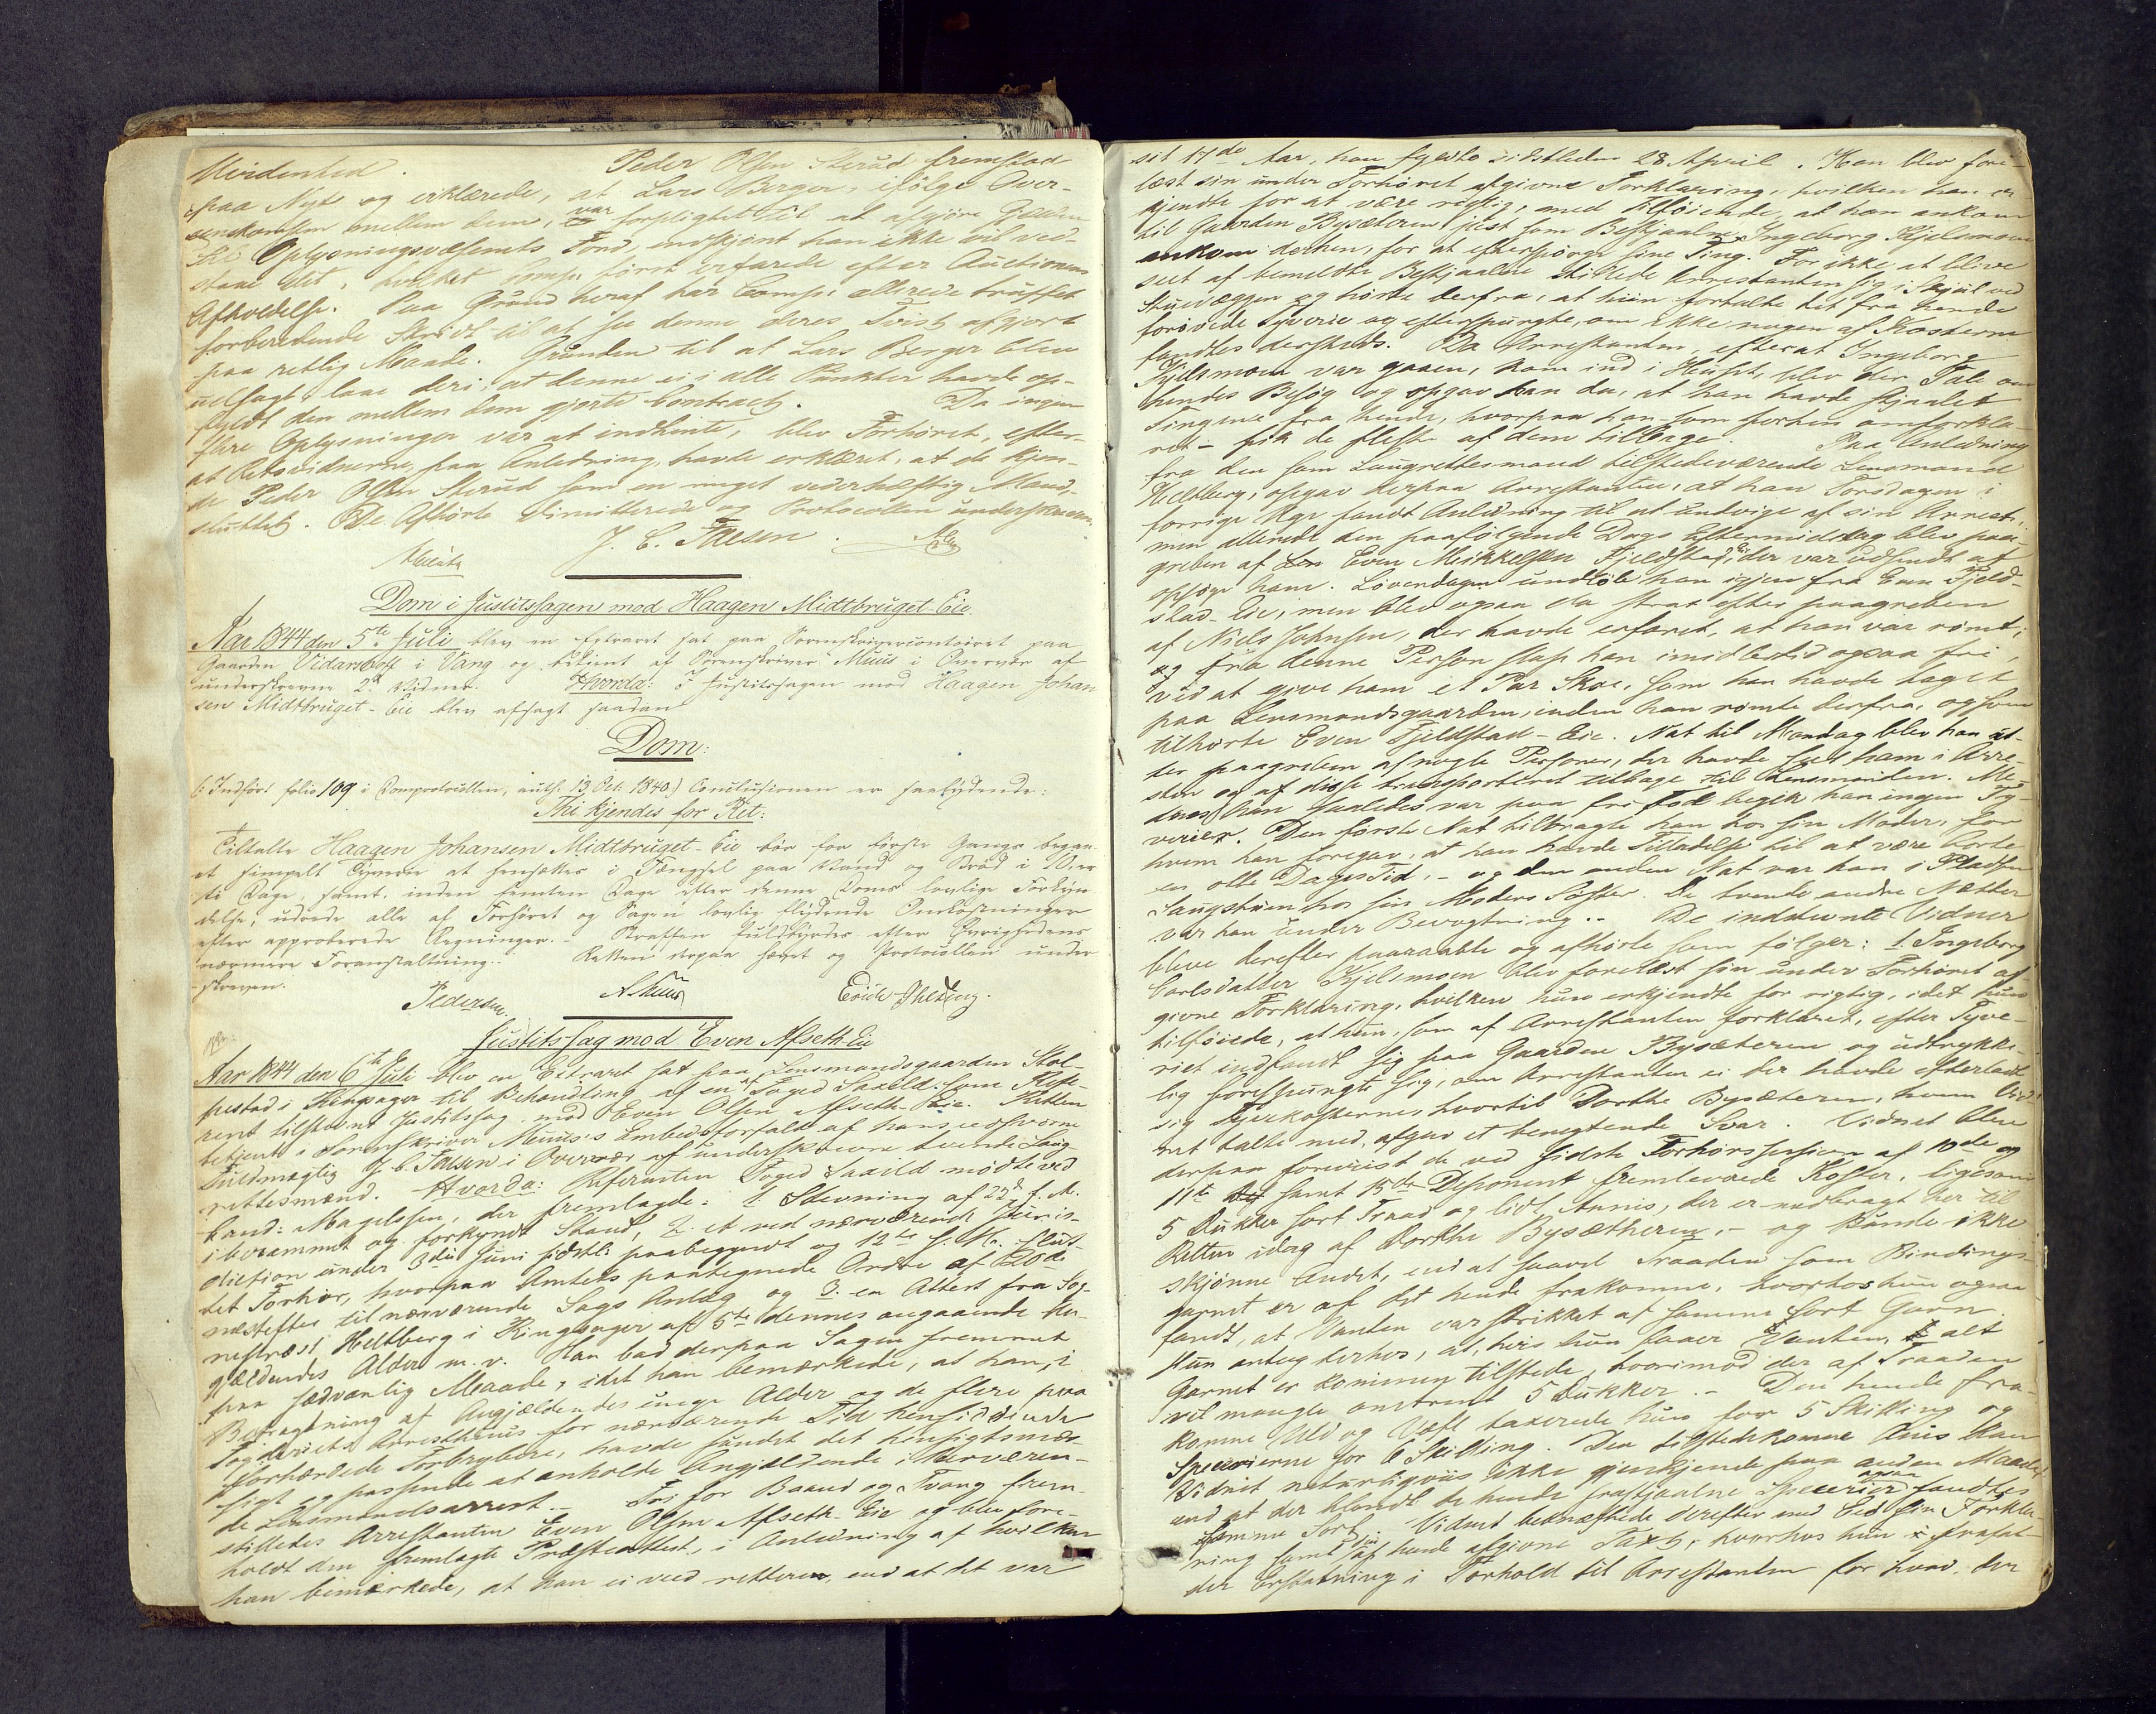 Mindenhed. Peder Olsen Sterud fremstod
paa Nyt og erklærede, at Lars Berger, ifölge Over-
enskomsten mellem dem, var forpligtet til at afgjöre Gjælden
til Oplysningsvæsenets Fond, endskjönt han ikke vil ved-
staae det, hvilket Comp: först erfarede efter Auctionens
Afholdelse. Paa Grund heraf har Comp: allerede truffet
forberedende Skridt til at faa denne deres Tvist afgjort
paa retlig Maade. Grunden til at Lars Berger blev
udsagt laae deri, at denne ei i alle Punkter havde op-
fyldt den mellem dem gjorte Contract. Da ingen
flere Oplysninger var at indhente, blev Forhöret, efter-
at Retsvidnerne, paa Anledning, havde erklæret, at de kjen-
de Peder Olsen Sterud som en meget vederhæftig Mand,
sluttet. De Afhörte dimitterede og Protocollen underskreven.
J. C. Falsen.
Dom i Justitssagen mod Haagen Midtbruget-Eie.
Aar 1844 den 5te Juli blev en Extraret sat paa Sorenskrivercontoiret paa
Gaarden Vidarshoff i Vang og betjent af Sorenskriver Muus i Overvær af
underskrevne 2de Vidner. Hvorda: I Justitssagen mod Haagen Johan
sen Midtbruget-Eie blev afsagt saadan
Dom:
(: Indfört folio 109 i Domprotocollen, auth: 13 Oct. 1840.) Conclusionen er saalydende:
Thi kjendes for Ret:
Tiltalte Haagen Johansen Midtbruget-Eie bör for förste Gang begaa-
et simpelt Tyverie at hensættes i Fængsel paa Vand og Bröd i
ti Dage, samt, inden femten Dage efter denne Doms lovlige Forkyn
delse, udrede alle af Forhöret og Sagen lovlig flydende Omkostninger
efter approberede Regninger. Straffen fuldbyrdes efter Övrighedens
nærmere Foranstaltning. Retten derpaa hævet og Protocollen under
skreven.
Pedersen. AMuus
Justitssag mod Even Afseth-Eie
Aar 1844 den 6te Juli blev en Extraret sat paa Lensmandsgaarden Stol-
pestad i Ringsager til Behandling af en af Foged Saxild som Refe-
rent tilstævnt Justitssag mod Even Olsen Afseth-Eie. Retten
betjent i Sorenskriver Muus's Embedsforfald af hans edsvorne
Fuldmægtig J. C. Falsen i Overvær af underskrevne tvende Laug-
rettesmænd. Hvorda: Referenten Foged Saxild mödte ved
Cand: Magelssen, der fremlagde: 1. Stevning af 22de f. M.
i berammet og forkyndt Stand, 2. et ved nærværende Juris-
diction under 3die Juni sidstl: paabegyndt og 12te s. M. slut-
tet Forhör, hvorpaa Amtets paategnede Ordre af
næstefter til nærværende Sags Anlæg og 3. en Attest fra Sog-
nepræst Heltberg i Ringsager af 5te dennes angaaende An-
gjældendes Alder m. v. Han bad derpaa Sagen fremmet
paa sædvanlig Maade, idet han bemærkede, at han, i
Betragtning af Angjældendes unge Alder og de flere paa
Fogderiets Arresthuus for nærværende Tid hensiddende
forhærdede Forbrydere, havde fundet det hensigtsmæs-
sigt og passende at anholde Angjældende i nærværen-
de Lensmandsarrest. Fri for Baand og Tvang frem-
stilledes Arrestanten Even Olsen Afseth-Eie og blev fore-
holdt den fremlagte Præsteattest, i Anledning af hvilken
han bemærkede, at han ei veed rettere, end at det var
sit 17de Aar, han fyldte sidstleden 28 April. Han blev fore-
læst sin under Forhöret afgivne Forklaring, hvilken han er-
kjendte for at være rigtig, med Tilföiende, at han ankom
til Gaarden Bysæteren just som Bestjaalne Ingeborg Kjelsmoen
ankom derhen, for at efterspörge sine Ting. For ikke at blive
seet af bemeldte Bestjaalne stillede Arrestanten sig i Skjul ved
Stuevæggen og hörte derfra, at hun fortalte det fra hende
forövede Tyverie og efterspurgte, om ikke nogen af Kosterne
fandtes dersteds. Da Arrestanten, efterat Ingeborg
Kjelsmoen var gaaen, kom ind i Huset, blev der Tale om
hendes Besög og opgav han da, at han havde stjaalet
Tingene fra hende, hvorpaa han - som forhen omforkla-
ret - fik de fleste af dem tilbage. Paa Anledning
fra den som Laugrettesmand tilstedeværende Lensmand
Heltberg, opgav derpaa Arrestanten, at han Torsdagen i
forrige Uge fandt Anledning til at undvige af sin Arrest,
men allerede den paafölgende Dags Eftermiddag blev paa-
greben af Even Meikkelsen Fjeldstad-Eie, der var udsendt at
opsöge ham. Löverdagen undlöb han igjen fra Even Fjeld-
stad-Eie, men blev ogsaa da strax efter paagreben
af Niels Johnsen, der havde erfaret, at han var römt,
og fra denne Person slap han imidlertid ogsaa fri,
ved at give ham et Par Skoe, som han havde taget
paa Lensmandsgaarden, inden han römte derfra, og som
tilhörte Even Fjeldstad-Eie. Nat til Mandag blev han at-
ter paagreben af nogle Personer, der havde seet ham i Arre-
sten og af disse transporteret tilbage til Lensmanden. Me-
dens han saaledes var paa fri Fod begik han ingen Ty-
verier. Den förste Nat tilbragte han hos sin Moder, for
hvem han foregav, at han havde Tilladelse til at være borte
en otte Dages Tid, - og den anden Nat var han i Pladsen
Laugstuen hos sin Moders Söster. De tvende andre Nætter
var han under Bevogtning. - De indstevnte Vidner
bleve derefter paaraabte og afhörte som fölger: 1. Ingeborg
Carlsdatter Kjelsmoen blev forelæst sin under Forhöret af-
givne Forklaring, hvilken hun erkjendte for rigtig, idet hun
tilföiede, at hun, som af Arrestanten forklaret, efter Tyve-
riet indfandt sig paa Gaarden Bysæteren og udtrykke-
lig forespurgte sig, om Arrestanten ei der havde efterladt
sig Tyvekosterne, hvortil Dorthe Bysæteren, hvem Vid-
net talte med, afgav et benegtende Svar. Vidnet blev
derpaa foreviist de ved sidste Forhörssession af 10de og
11te samt 15de Deponent fremlevede Koster, ligesom
5 Dukker sort Traad og lidt Annis, der er medbragt her til
Retten idag af Dorthe Bysætheren, - og kunde ikke
skjönne Andet, end at saavel Traaden som Bindings-
garnet er af det hende frakomne, hvorhos hun ogsaa
fandt, at Vanten var strikket af samme sort Garn.
Hun antog derhos, at, hvis hun faaer Vanten, alt
Garnet er kommen tilstede, hvorimod der af Traaden
vil mangle omtrent 5 Dukker. - Den hende fra-
komne Uld og Væft taxerede hun for 5 Skilling og
Specerierne for 6 Skilling. Den tilstedekomne Anis kan
Vidnet naturligviis ikke gjenkjende paa anden Maade,
end at der blandt de hende frastjaalne Specerier ogsaa fandtes
samme Sort. Vidnet bekræftede derefter med Eed sin Forkla-
ring samt den af hende afgivne Taxt, hvorhos hun frafal-
der Erstatning i Forhold til Arrestanten for hvad der